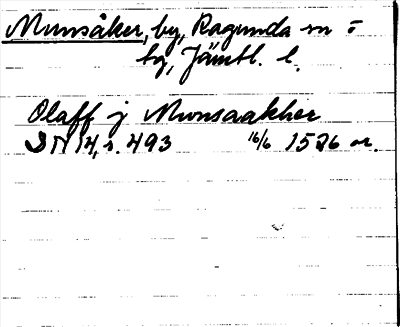 Munsåker, by, Ragunda sn o
by, Jämtl. l.
Olaff j Munsaakher
DN 14, s. 493 16/6 1526 or.